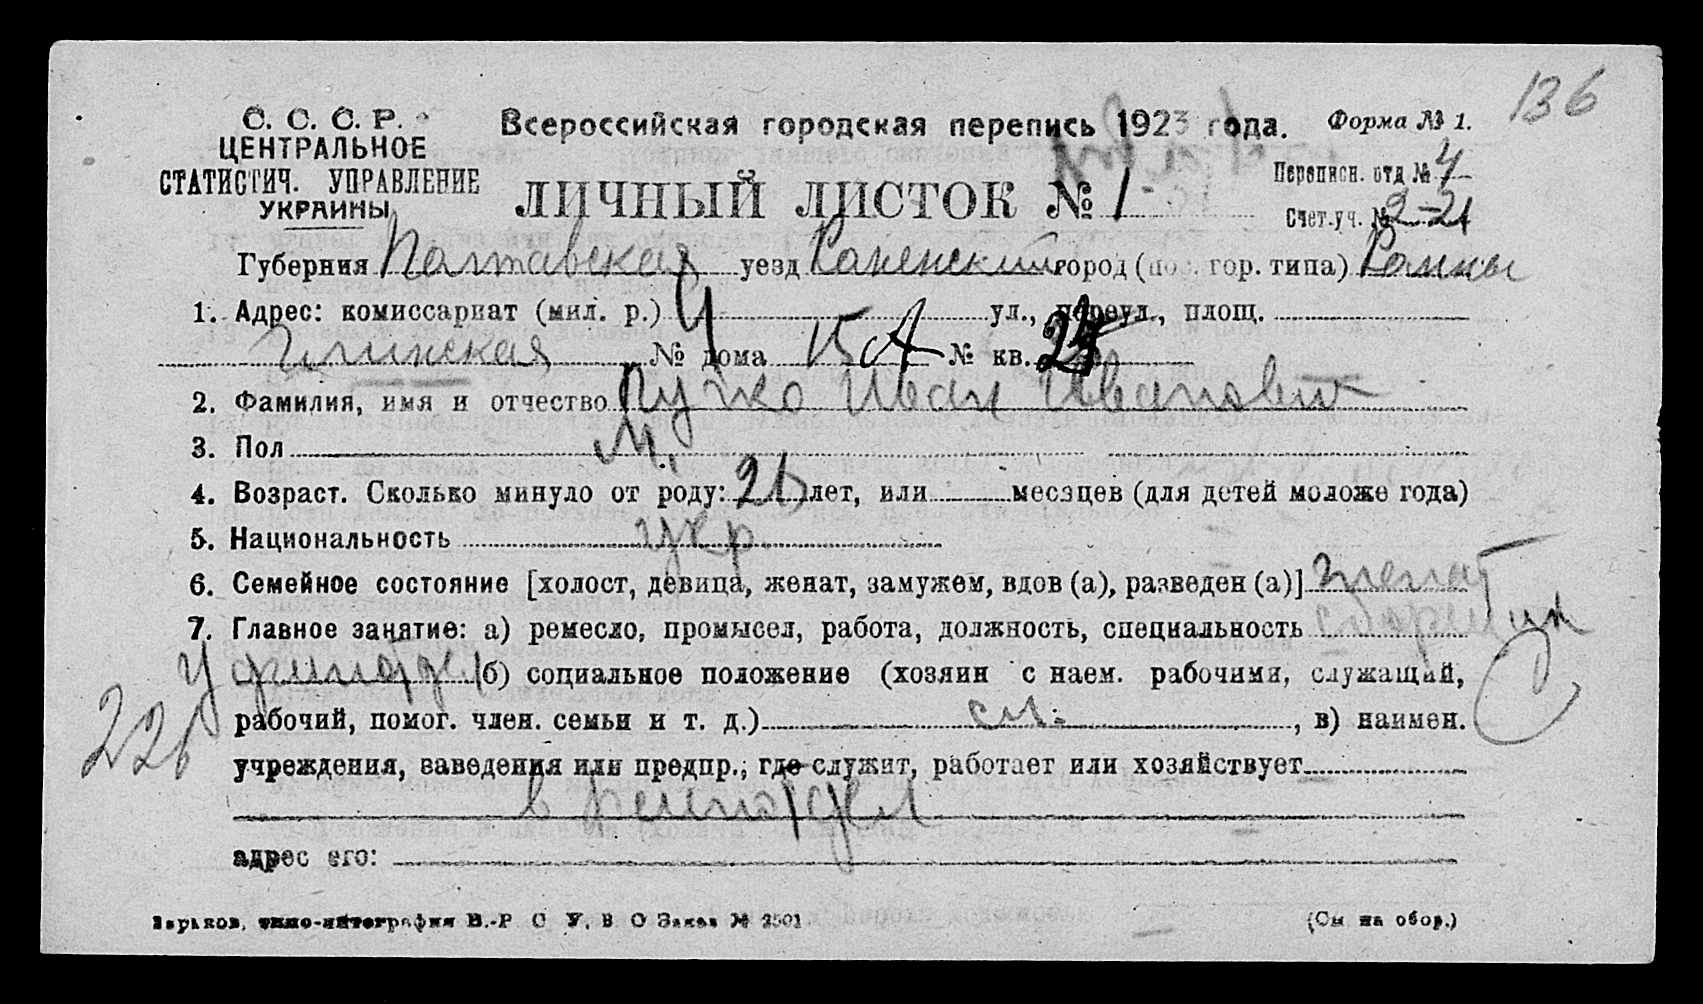 136
С. С. С. Р.
ЦЕНТРАЛЬНОЕ
СТАТИСТИЧ. УПРАВЛЕНИЕ
УКРАИНЫ
Всероссийская городская перепись 1923 года. Форма № 1.
ЛИЧНЫЙ ЛИСТОК № 1
Переписн. отд № 4
Счет.уч. № 2-21
Губерния Полтавская уезд Роменский город (пос. гор. типа) Ромны
1. Адрес: комиссариат (мил. р.) Ч ул., переул., площ.
Глинская № дома 15 А № кв.
2. Фамилия, имя и отчество Пужо Иван Иванович
3. Пол М.
4. Возраст. Сколько минуло от роду: 26 лет, или месяцев (для детей моложе года)
5. Национальность укр.
6. Семейное состояние [холост, девица, женат, замужем, вдов (а), разведен (а)] женат
7. Главное занятие: а) ремесло, промысел, работа, должность, специальность сборщик
финотдел б) социальное положение (хозяин с наем. рабочими, служащий,
226 рабочий, помог. член. семьи и т. д.) сл. , в) наимен.
учреждения, заведения или предпр., где служит, работает или хозяйствует
в финотдел
адрес его:
Харьков, типо-литография В.-Р С У, В О Заказ № 2501 (См на обор.)